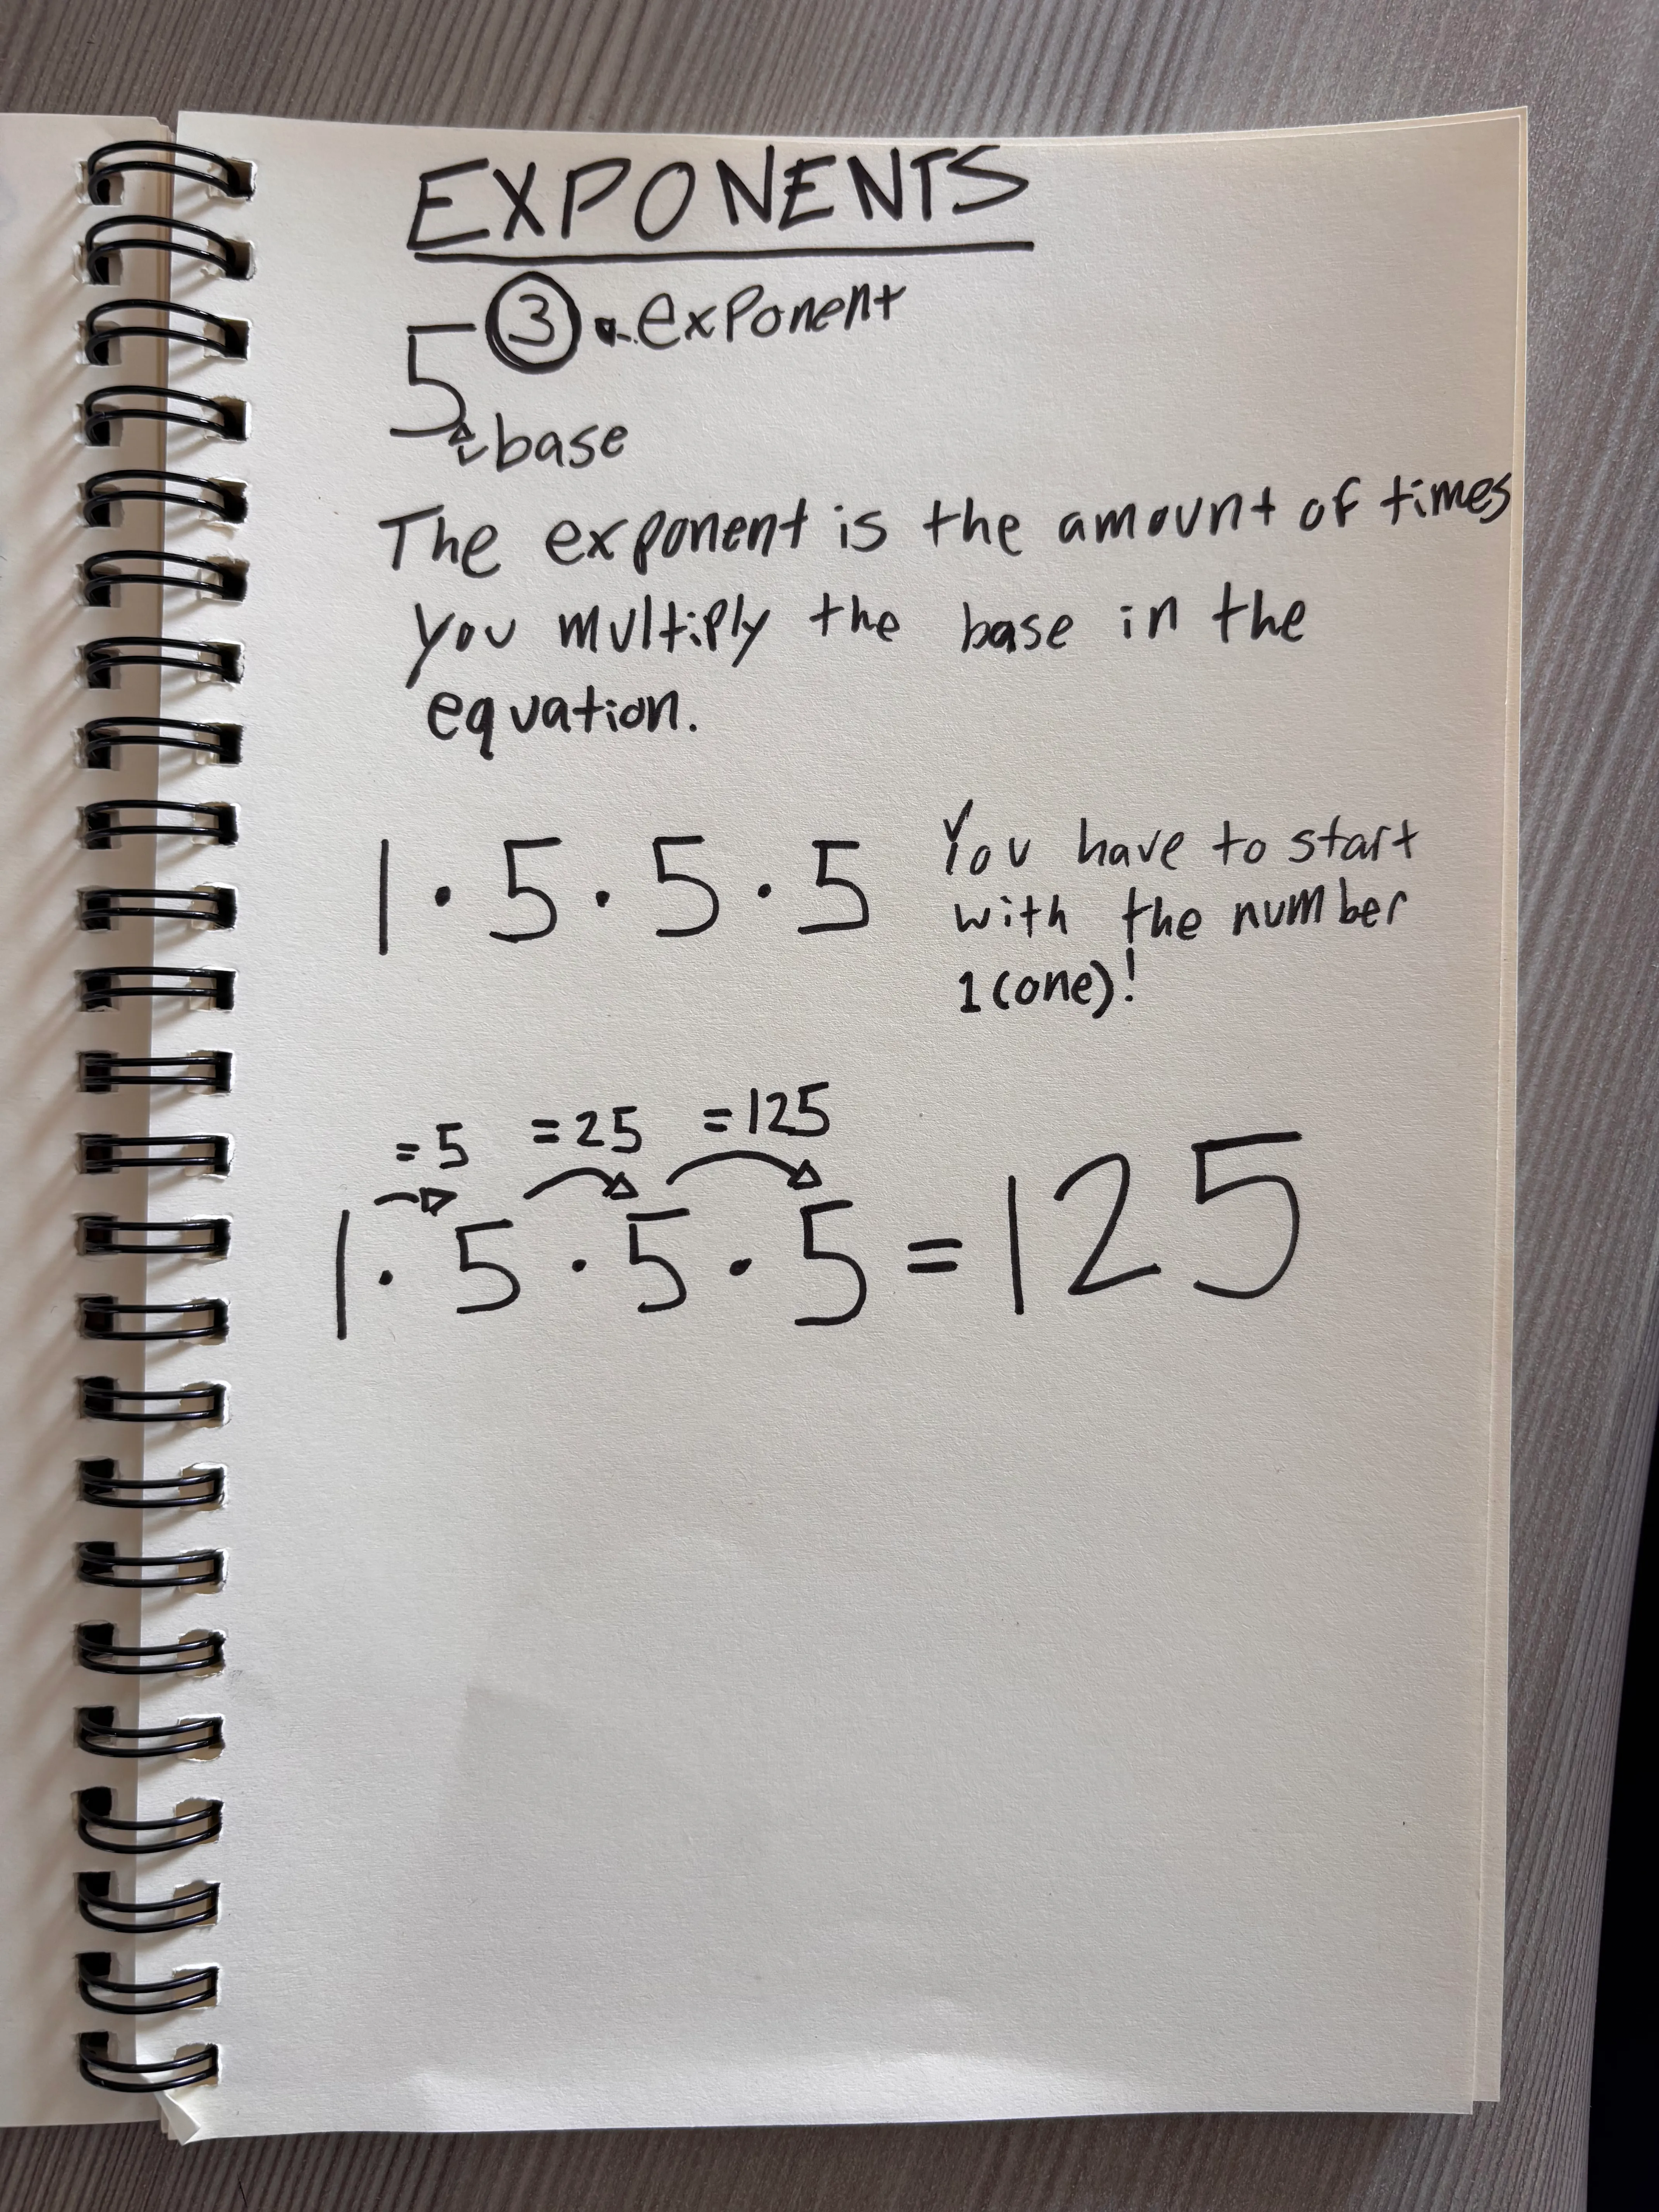 EXPONENTS
3 exponent
5
base
The exponent is the amount of times
you multiply the base in the
equation.
1 · 5 · 5 · 5
You have to start
with the number
1 (one)!
=5 =25 =125
1 · 5 · 5 · 5 = 125